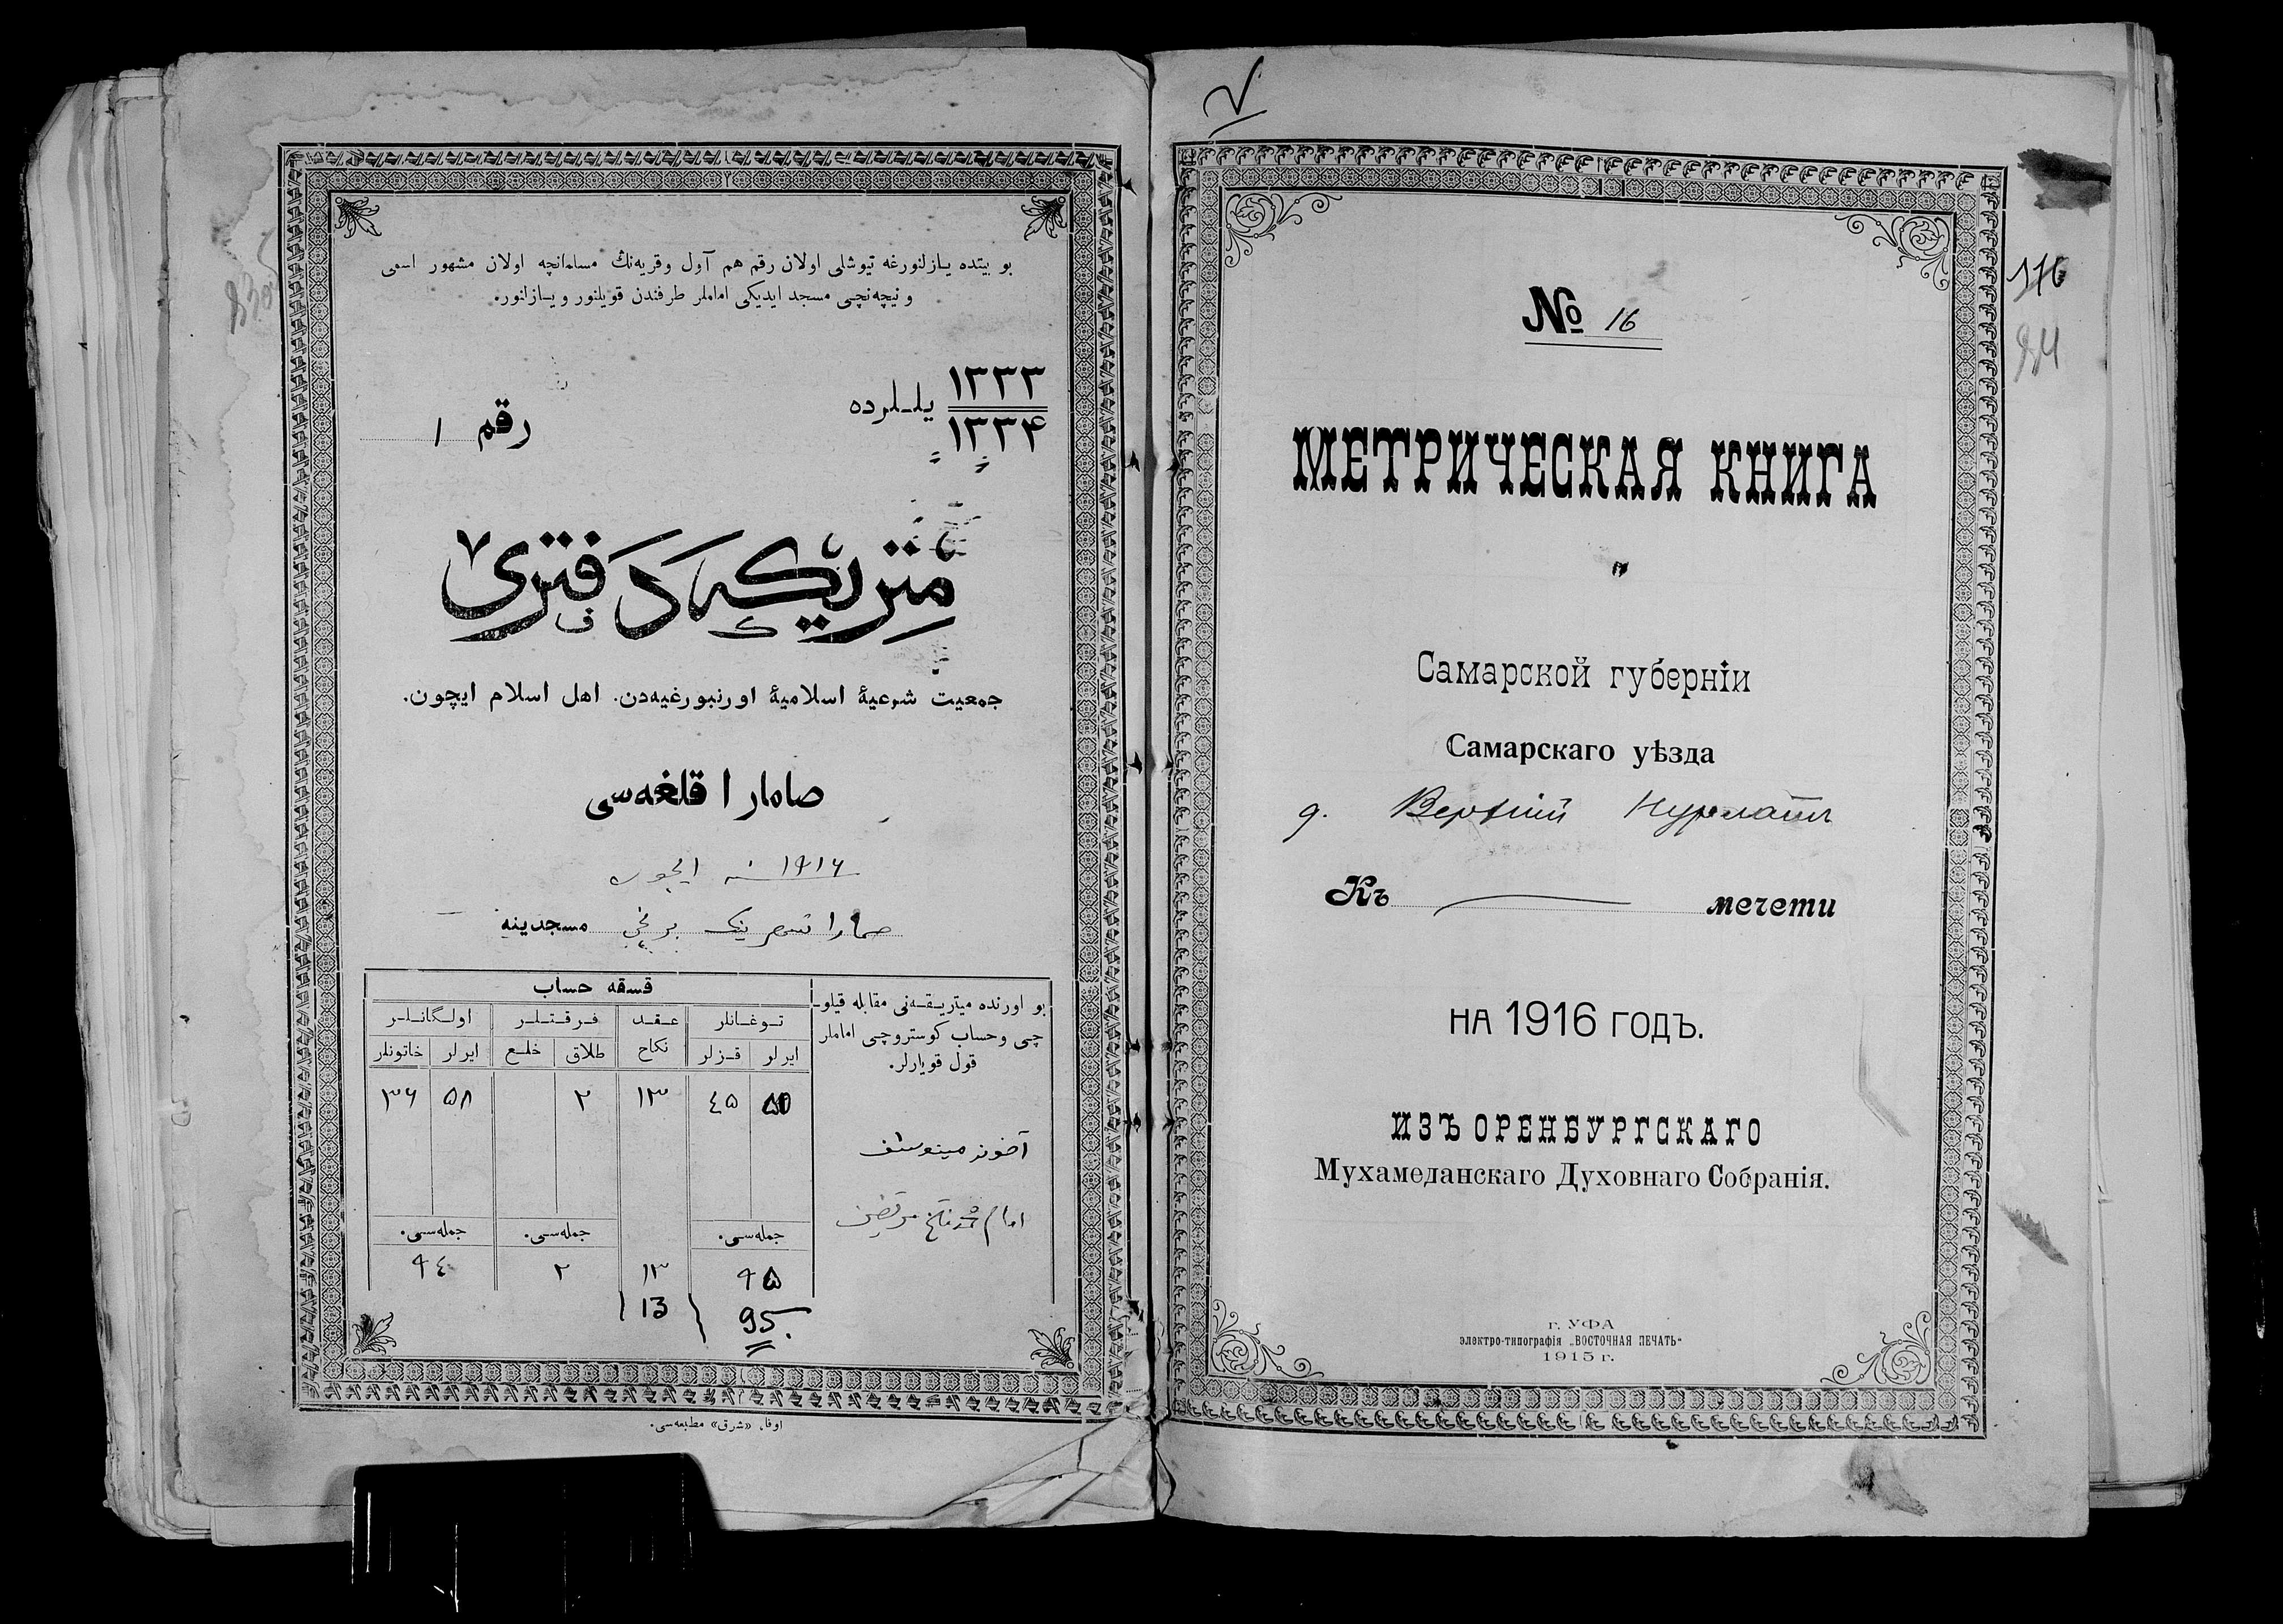 بو بیتده یازلنورغه تیوشلی اولان رقم هم آول وقریه‌نڭ مسلمانچه اولان مشهور اسمی
و نیچه‌نچی مسجد ایدیکی اماملر طرفندن قویلنور و یـازلنور.
۱۳۳۳
۱۳۳۴
یلـلرده
رقم ۱
متریكه دفتری
جمعیت شرعیهٔ اسلامیهٔ اورنبورغیه‌دن. اهل اسلام ایچون.
صامارا قلغه‌سی
۱۹۱۶ نه ایچون
صمارا شهرینك برنچی مسجدینه
بو اورنده میتریـقـه‌نی مقابله قیلوـ
چی وحساب كوستروچی اماملر
قول قویارلر.
قسقه حساب
تـوغـانلر عـقـد فـرقـتـلـر اولـگانـلـر
ایرلر قـزلر نكاح طلاق خلـع ایرلر خاتونلر
۵۰ ٤۵ ۱۳ ۲ ۵۸ ۳۶
آخوند مینوسف
امام
جمله‌سی. جمله‌سی. جمله‌سی.
۹۵ ۱۳ ۲ ۹٤
95. 13
اوفا، «شرق» مطبعه‌سی.
№ 16
176
МЕТРИЧЕСКАЯ КНИГА
Самарской губерніи
Самарскаго уѣзда
д. Верхній Нурлатъ
Къ мечети
НА 1916 ГОДЪ.
ИЗЪ ОРЕНБУРГСКАГО
Мухамеданскаго Духовнаго Собранія.
г. УФА
электро-типографія „ВОСТОЧНАЯ ПЕЧАТЬ“
1915 г.